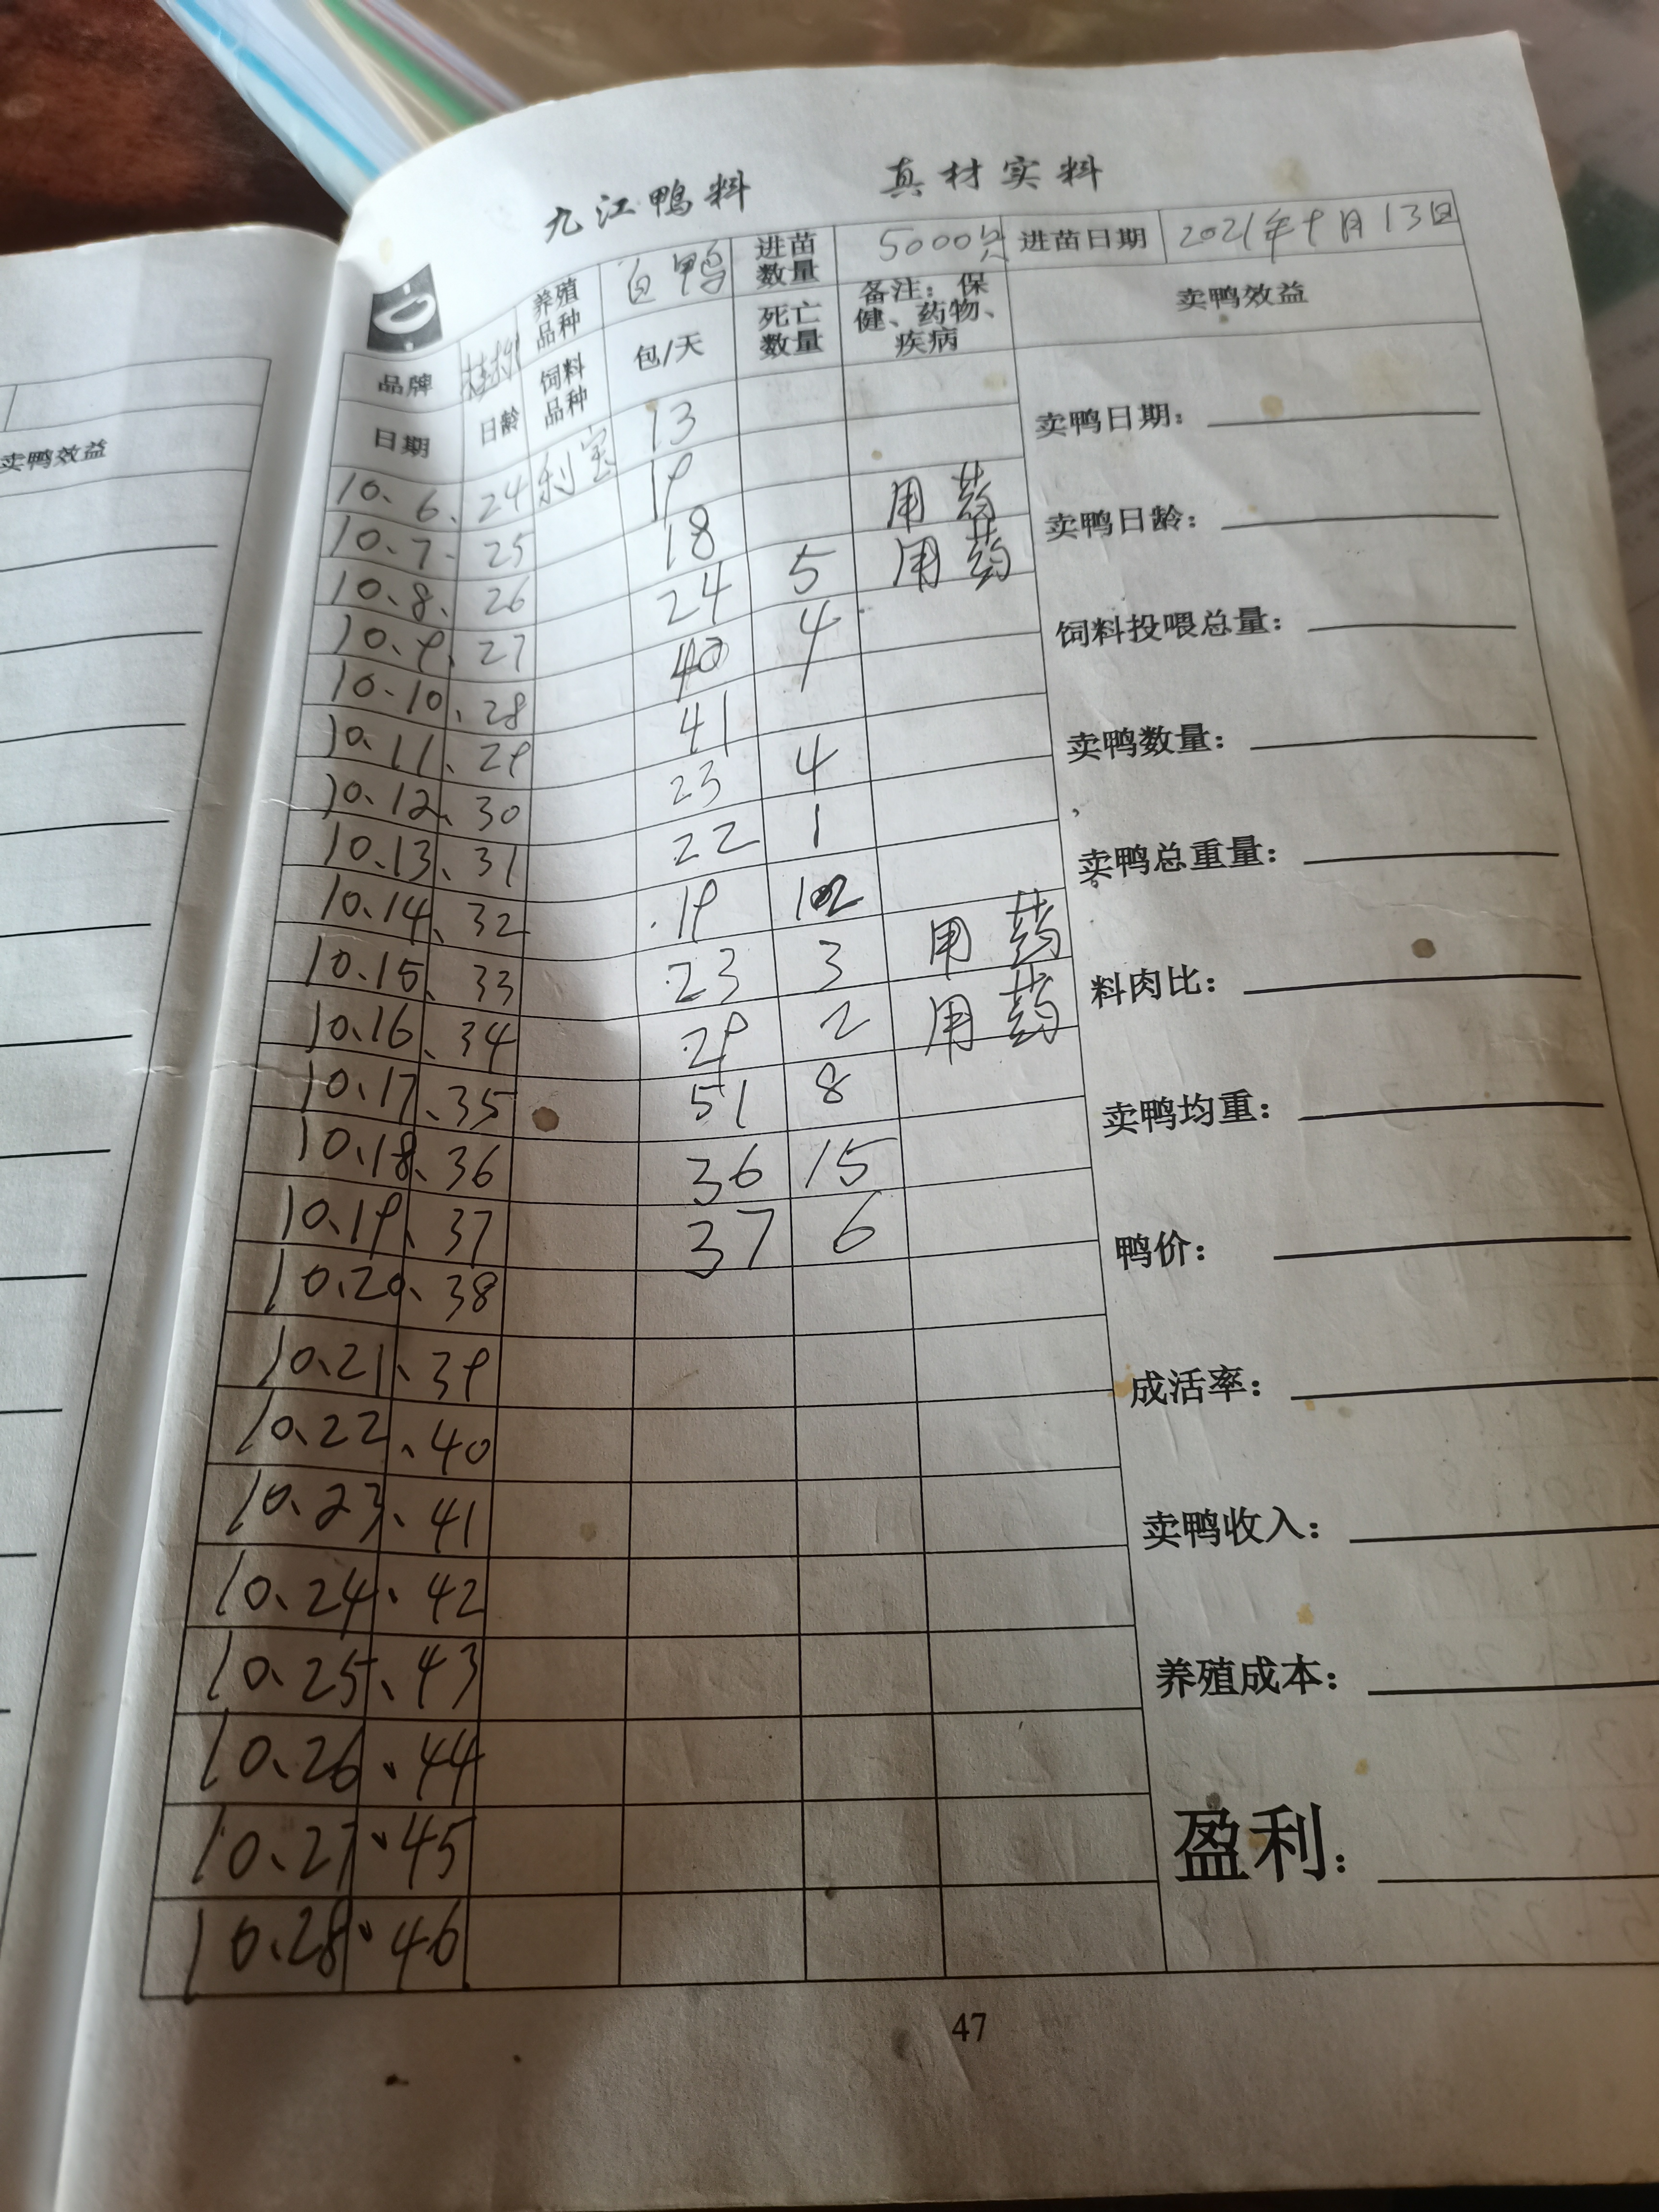 九江鸭料 真材实料
品牌 桂柳 养殖品种 白鸭 进苗数量 5000只 进苗日期 2021年9月13日
日期 日龄 饲料品种 包/天 死亡数量 备注：保健、药物、疾病 卖鸭效益
10、6、24 利宝 13
10、7、25 19
10、8、26 18 用药
10、9、27 24 5 用药
10、10、28 40 4
10、11、29 41
10、12、30 23 4
10、13、31 22 1
10、14、32 19
10、15、33 23 3 用药
10、16、34 29 2 用药
10、17、35 51 8
10、18、36 36 15
10、19、37 37 6
10、20、38
10、21、39
10、22、40
10、23、41
10、24、42
10、25、43
10、26、44
10、27、45
10、28、46
卖鸭日期：
卖鸭日龄：
饲料投喂总量：
卖鸭数量：
卖鸭总重量：
料肉比：
卖鸭均重：
鸭价：
成活率：
卖鸭收入：
养殖成本：
盈利：
47
卖鸭效益